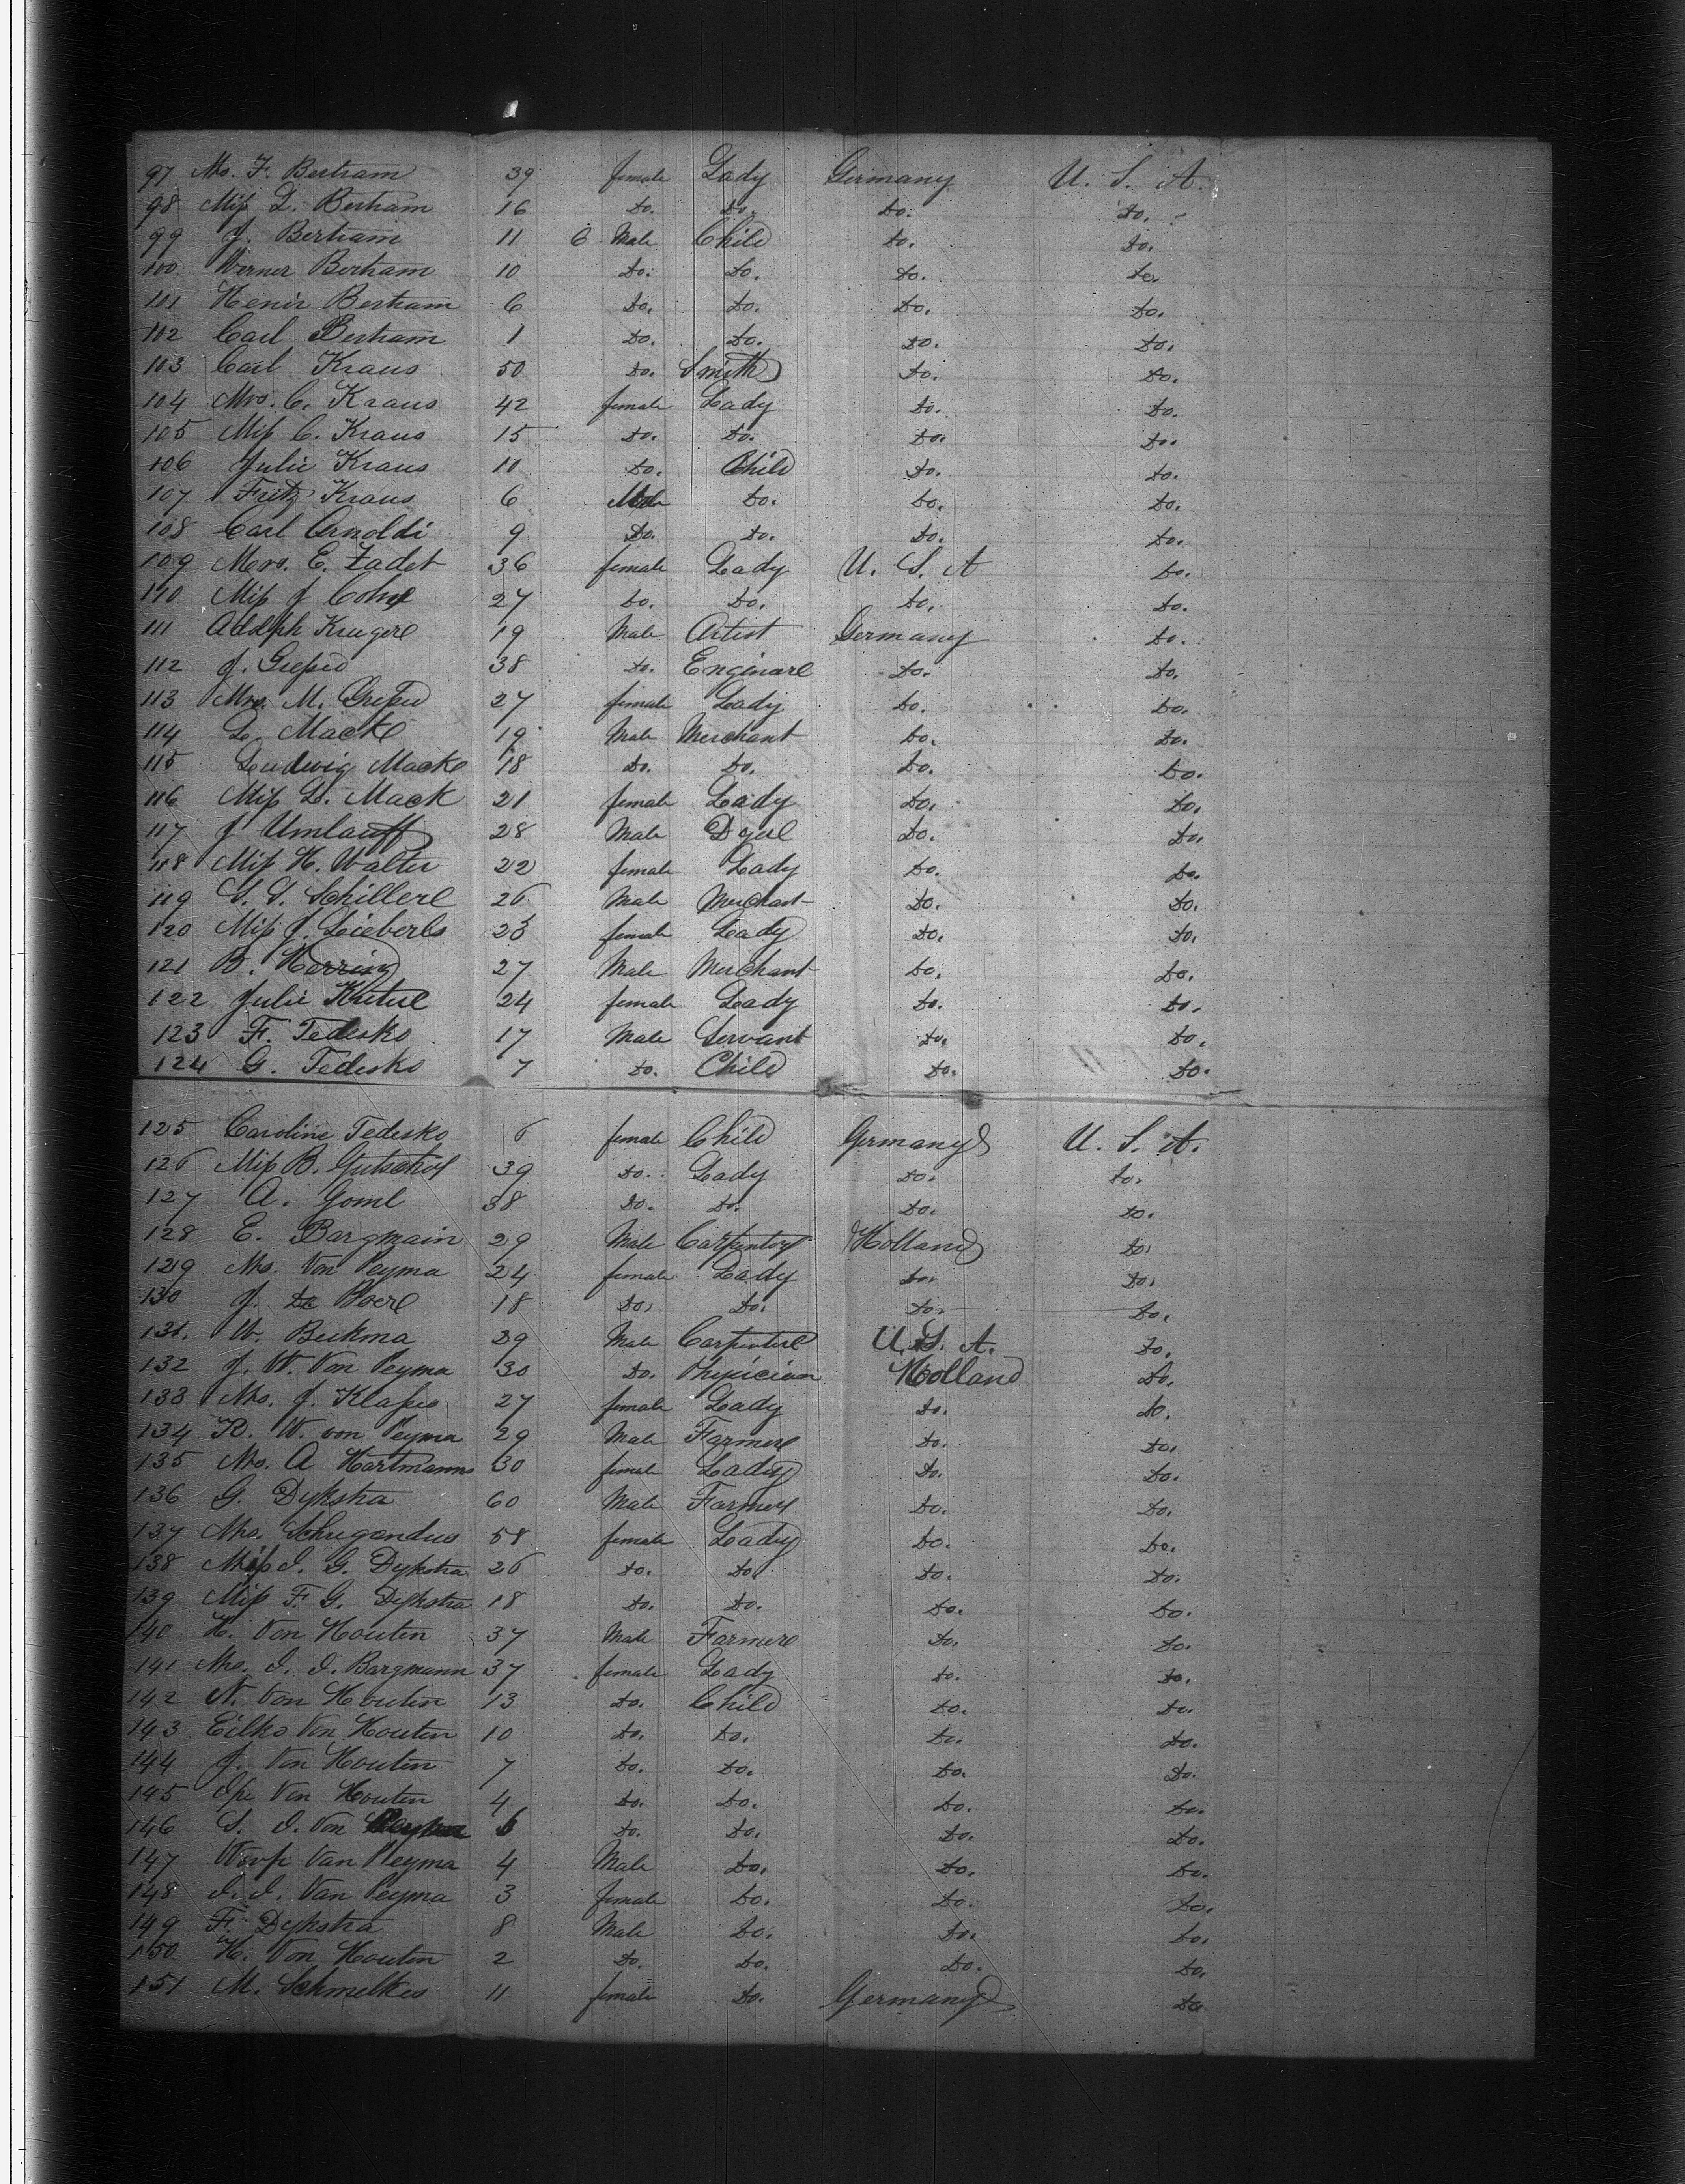 97 Mrs. F. Bertram 39 female Lady Germany U. S. A.
98 Miss L. Bertram 16 do. do. do. do.
99 J. Bertram 11 Male Child do. do.
100 Werner Bertram 10 do. do. do. do.
101 Henir Bertram 6 do. do. do. do.
102 Carl Bertram 1 do. do. do. do.
103 Carl Kraus 50 do. Smith do. do.
104 Mrs. C. Kraus 42 female Lady do. do.
105 Miss C. Kraus 15 do. do. do. do.
106 Julie Kraus 10 do. Child do. do.
107 Fritz Kraus 6 Male do. do. do.
108 Carl Arnoldi 9 do. do. do. do.
109 Mrs. E. Zadet 36 female Lady U. S. A do.
110 Miss J 27 do. do. do. do.
111 Adolph Krugere 19 Male Artist Germany do.
112 J. 38 do. Enginare do. do.
113 Mrs. M. 27 female Lady do. do.
114 L. Macke 19 Male Merchant do. do.
115 Ludwig Macke 18 do. do. do. do.
116 Miss L. Mack 21 female Lady do. do.
117 J Umlauff 28 Male Dyere do. do.
118 Miss H. Walter 22 female Lady do. do.
119 S. S. Schillere 26 Male Merchant do. do.
120 Miss J. Lieberls 23 female Lady do. do.
121 B. Herring 27 Male Merchant do. do.
122 Julie 24 female Lady do. do.
123 F. Tedesko 17 Male Servant do. do.
124 G. Tedesko 7 do. Child do. do.
125 Caroline Tedesko 6 female Child Germany U. S. A.
126 Miss B. 39 do. Lady do. do.
127 A. 38 do. do. do. do.
128 E. Bargmain 29 Male Carpenter Holland do.
129 Mrs. Von Peyma 24 female Lady do. do.
130 J. De Boere 18 do. do. do. do.
131. W. Beekma 29 Male Carpentere U. S. A. do.
132 J. W. Von Peyma 30 do. Physician Holland do.
133 Mrs. J. Klases 27 female Lady do. do.
134 R. W. von Peyma 29 Male Farmere do. do.
135 Mrs. A Hartmanns 30 female Lady do. do.
136 G. Dykstra 60 Male Farmer do. do.
137 Mrs. 58 female Lady do. do.
138 Miss I. G. Dykstra 26 do. do. do. do.
139 Miss F. G. Dykstra 18 do. do. do. do.
140 H. Von Houten 37 Male Farmere do. do.
141 Mrs. I. I. Bargmann 37 female Lady do. do.
142 N. Von Houten 13 do. Child do. do.
143 Eilko Von Houten 10 do. do. do. do.
144 J. Von Houten 7 do. do. do. do.
145 Von Houten 4 do. do. do. do.
146 S. I. Von do. do. do. do.
147 Worp Van Peyma 4 Male do. do. do.
148 I. I. Van Peyma 3 female do. do. do.
149 F. Dykstra 8 Male do. do. do.
150 H. Von Houten 2 do. do. do. do.
151 M. Schmelkes 11 female do. Germany do